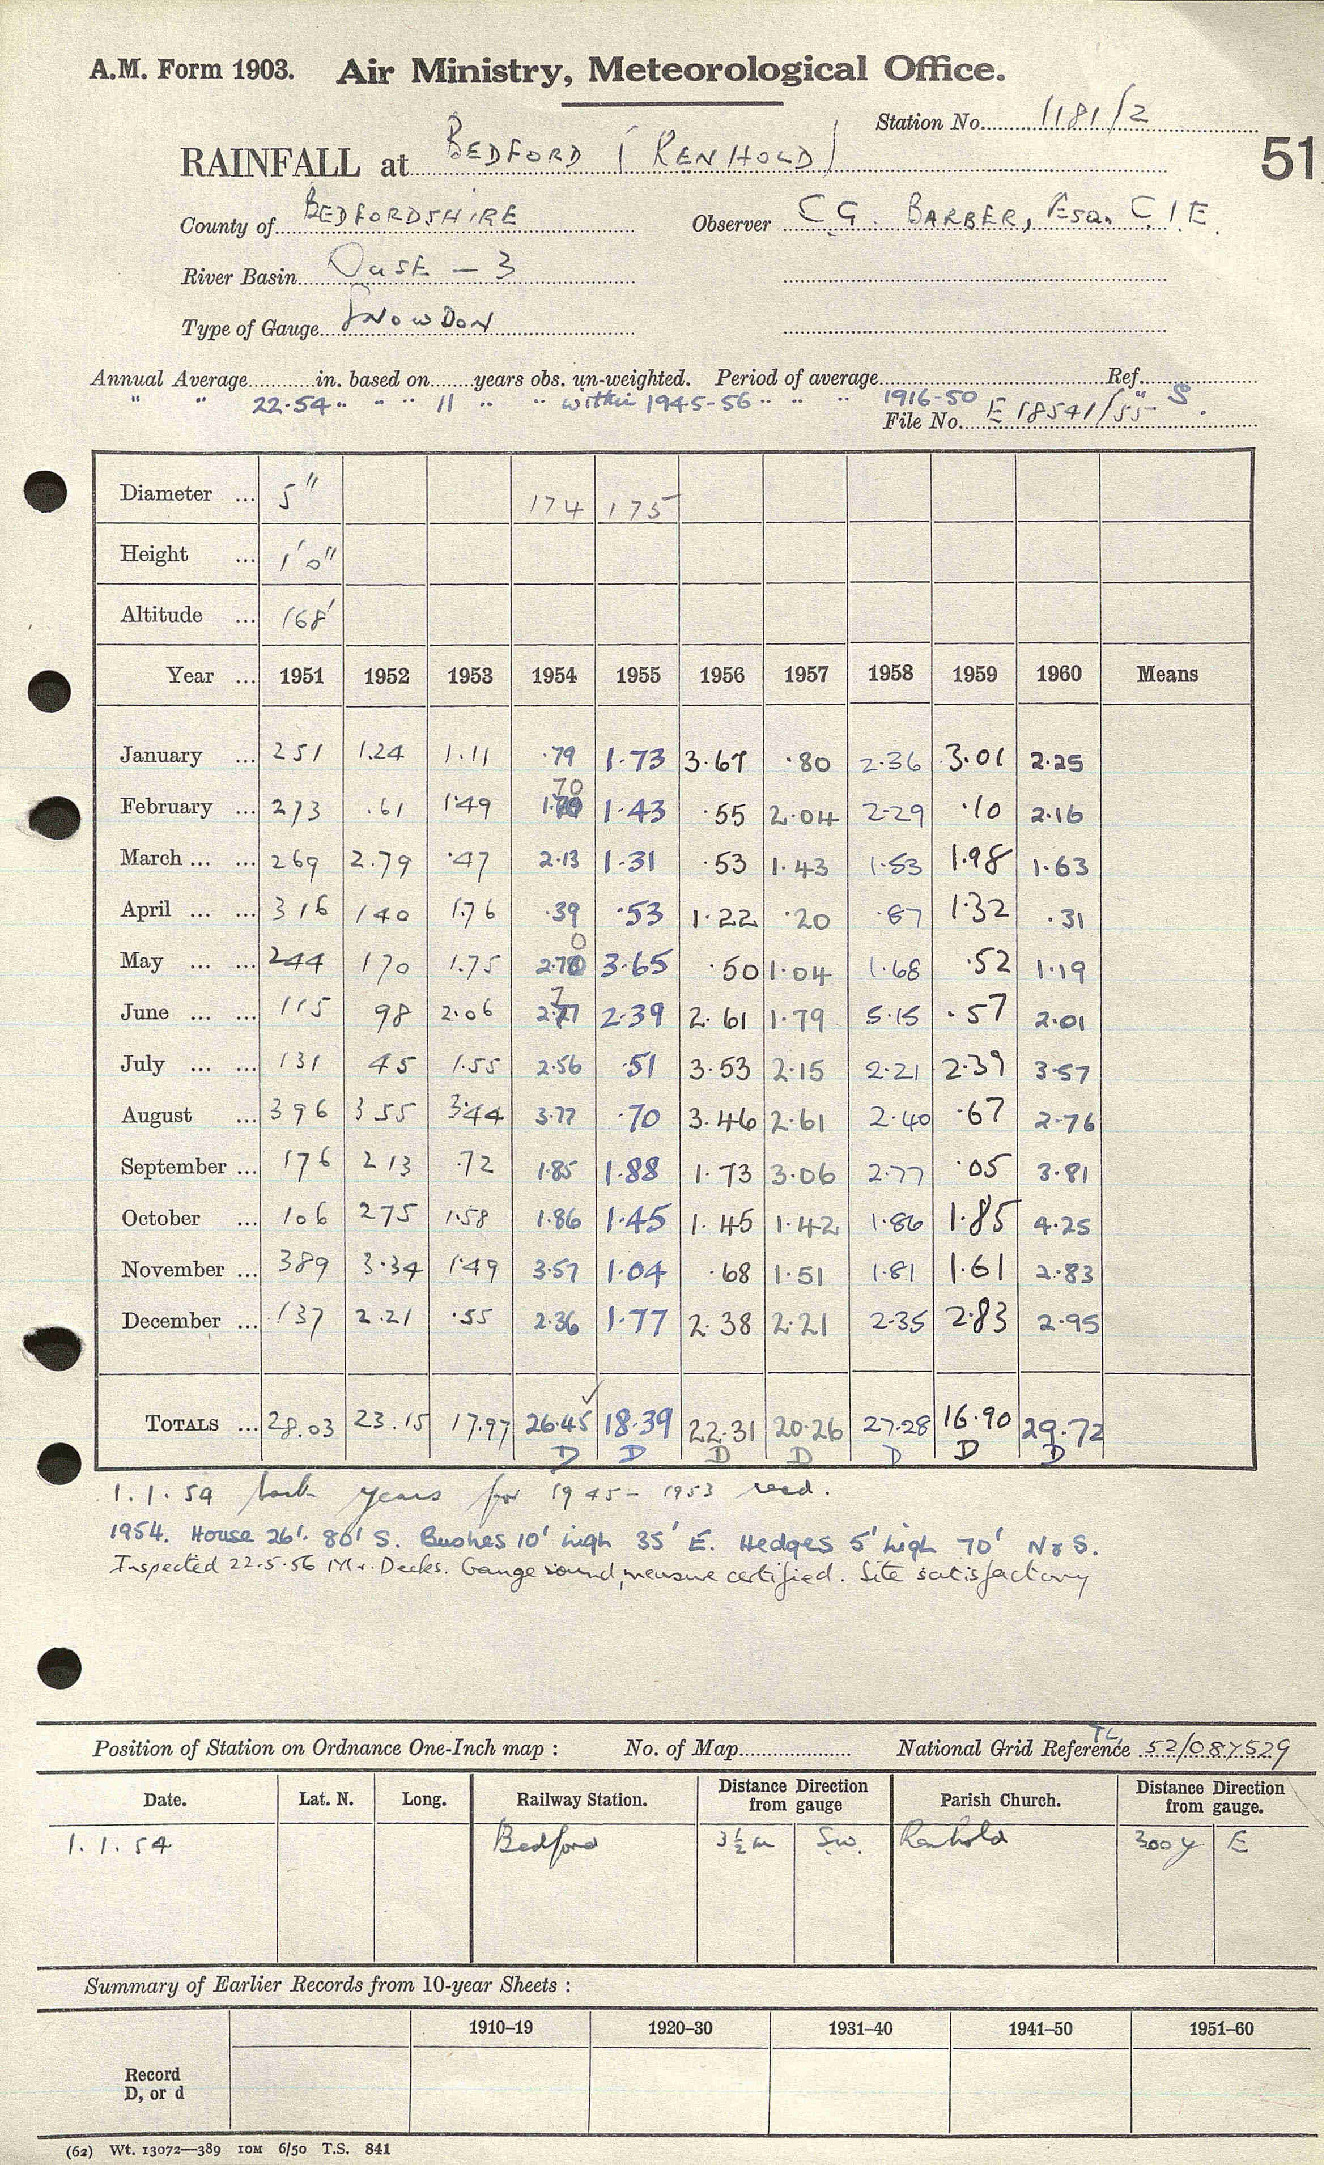 A.M. Form 1903. Air Ministry, Meteorological Office.
Station No. 1181/2
51
RAINFALL at BEDFORD (RENHOLD)
County of BEDFORDSHIRE Observer C.G. BARBER, Esq. C.I.E.
River Basin OUSE – 3
Type of Gauge SNOWDON
Annual Average in. based on years obs. un-weighted. Period of average Ref.
" " 22.54 " " " 11 " " within 1945-56 " " " 1916-50 " S.
File No. E 18541/55
Diameter ... 5" 174 175
Height ... 1'0"
Altitude ... 168'
Year ... 1951 1952 1953 1954 1955 1956 1957 1958 1959 1960 Means
January ... 251 1.24 1.11 .79 1.73 3.67 .80 2.36 3.01 2.25
70
February ... 273 .61 1.49 1.70 1.43 .55 2.04 2.29 .10 2.16
March ... ... 269 2.79 .47 2.13 1.31 .53 1.43 1.53 1.98 1.63
April ... ... 316 140 1.76 .39 .53 1.22 .20 .87 1.32 .31
0
May ... ... 244 170 1.75 2.70 3.65 .50 1.04 1.68 .52 1.19
7
June ... ... 115 98 2.06 2.77 2.39 2.61 1.79 5.15 .57 2.01
July ... ... 131 45 1.55 2.56 .51 3.53 2.15 2.21 2.39 3.57
August ... 396 355 3.44 3.77 .70 3.46 2.61 2.40 .67 2.76
September ... 176 213 .72 1.85 1.88 1.73 3.06 2.77 .05 3.81
October ... 106 275 1.58 1.86 1.45 1.45 1.42 1.86 1.85 4.25
November ... 389 3.34 1.49 3.57 1.04 .68 1.51 1.81 1.61 2.83
December ... 137 2.21 .55 2.36 1.77 2.38 2.21 2.35 2.83 2.95
TOTALS ... 28.03 23.15 17.97 26.45 18.39 22.31 20.26 27.28 16.90 29.72
D D D D D D D
1.1.54 back years for 1945 – 1953 recd.
1954. House 26'. 80' S. Bushes 10' high 35' E. Hedges 5' high 70' N & S.
Inspected 22.5.56 Mr. Decks. Gauge sound, measure certified. Site satisfactory
Position of Station on Ordnance One-Inch map : No. of Map National Grid Reference 52/087529
TL
Date. Lat. N. Long. Railway Station. Distance Direction from gauge Parish Church. Distance Direction from gauge.
1.1.54 Bedford 3½ m S.W. Renhold 300 y E
Summary of Earlier Records from 10-year Sheets :
1910–19 1920–30 1931–40 1941–50 1951–60
Record
D, or d
(62) Wt. 13072—389 10M 6/50 T.S. 841